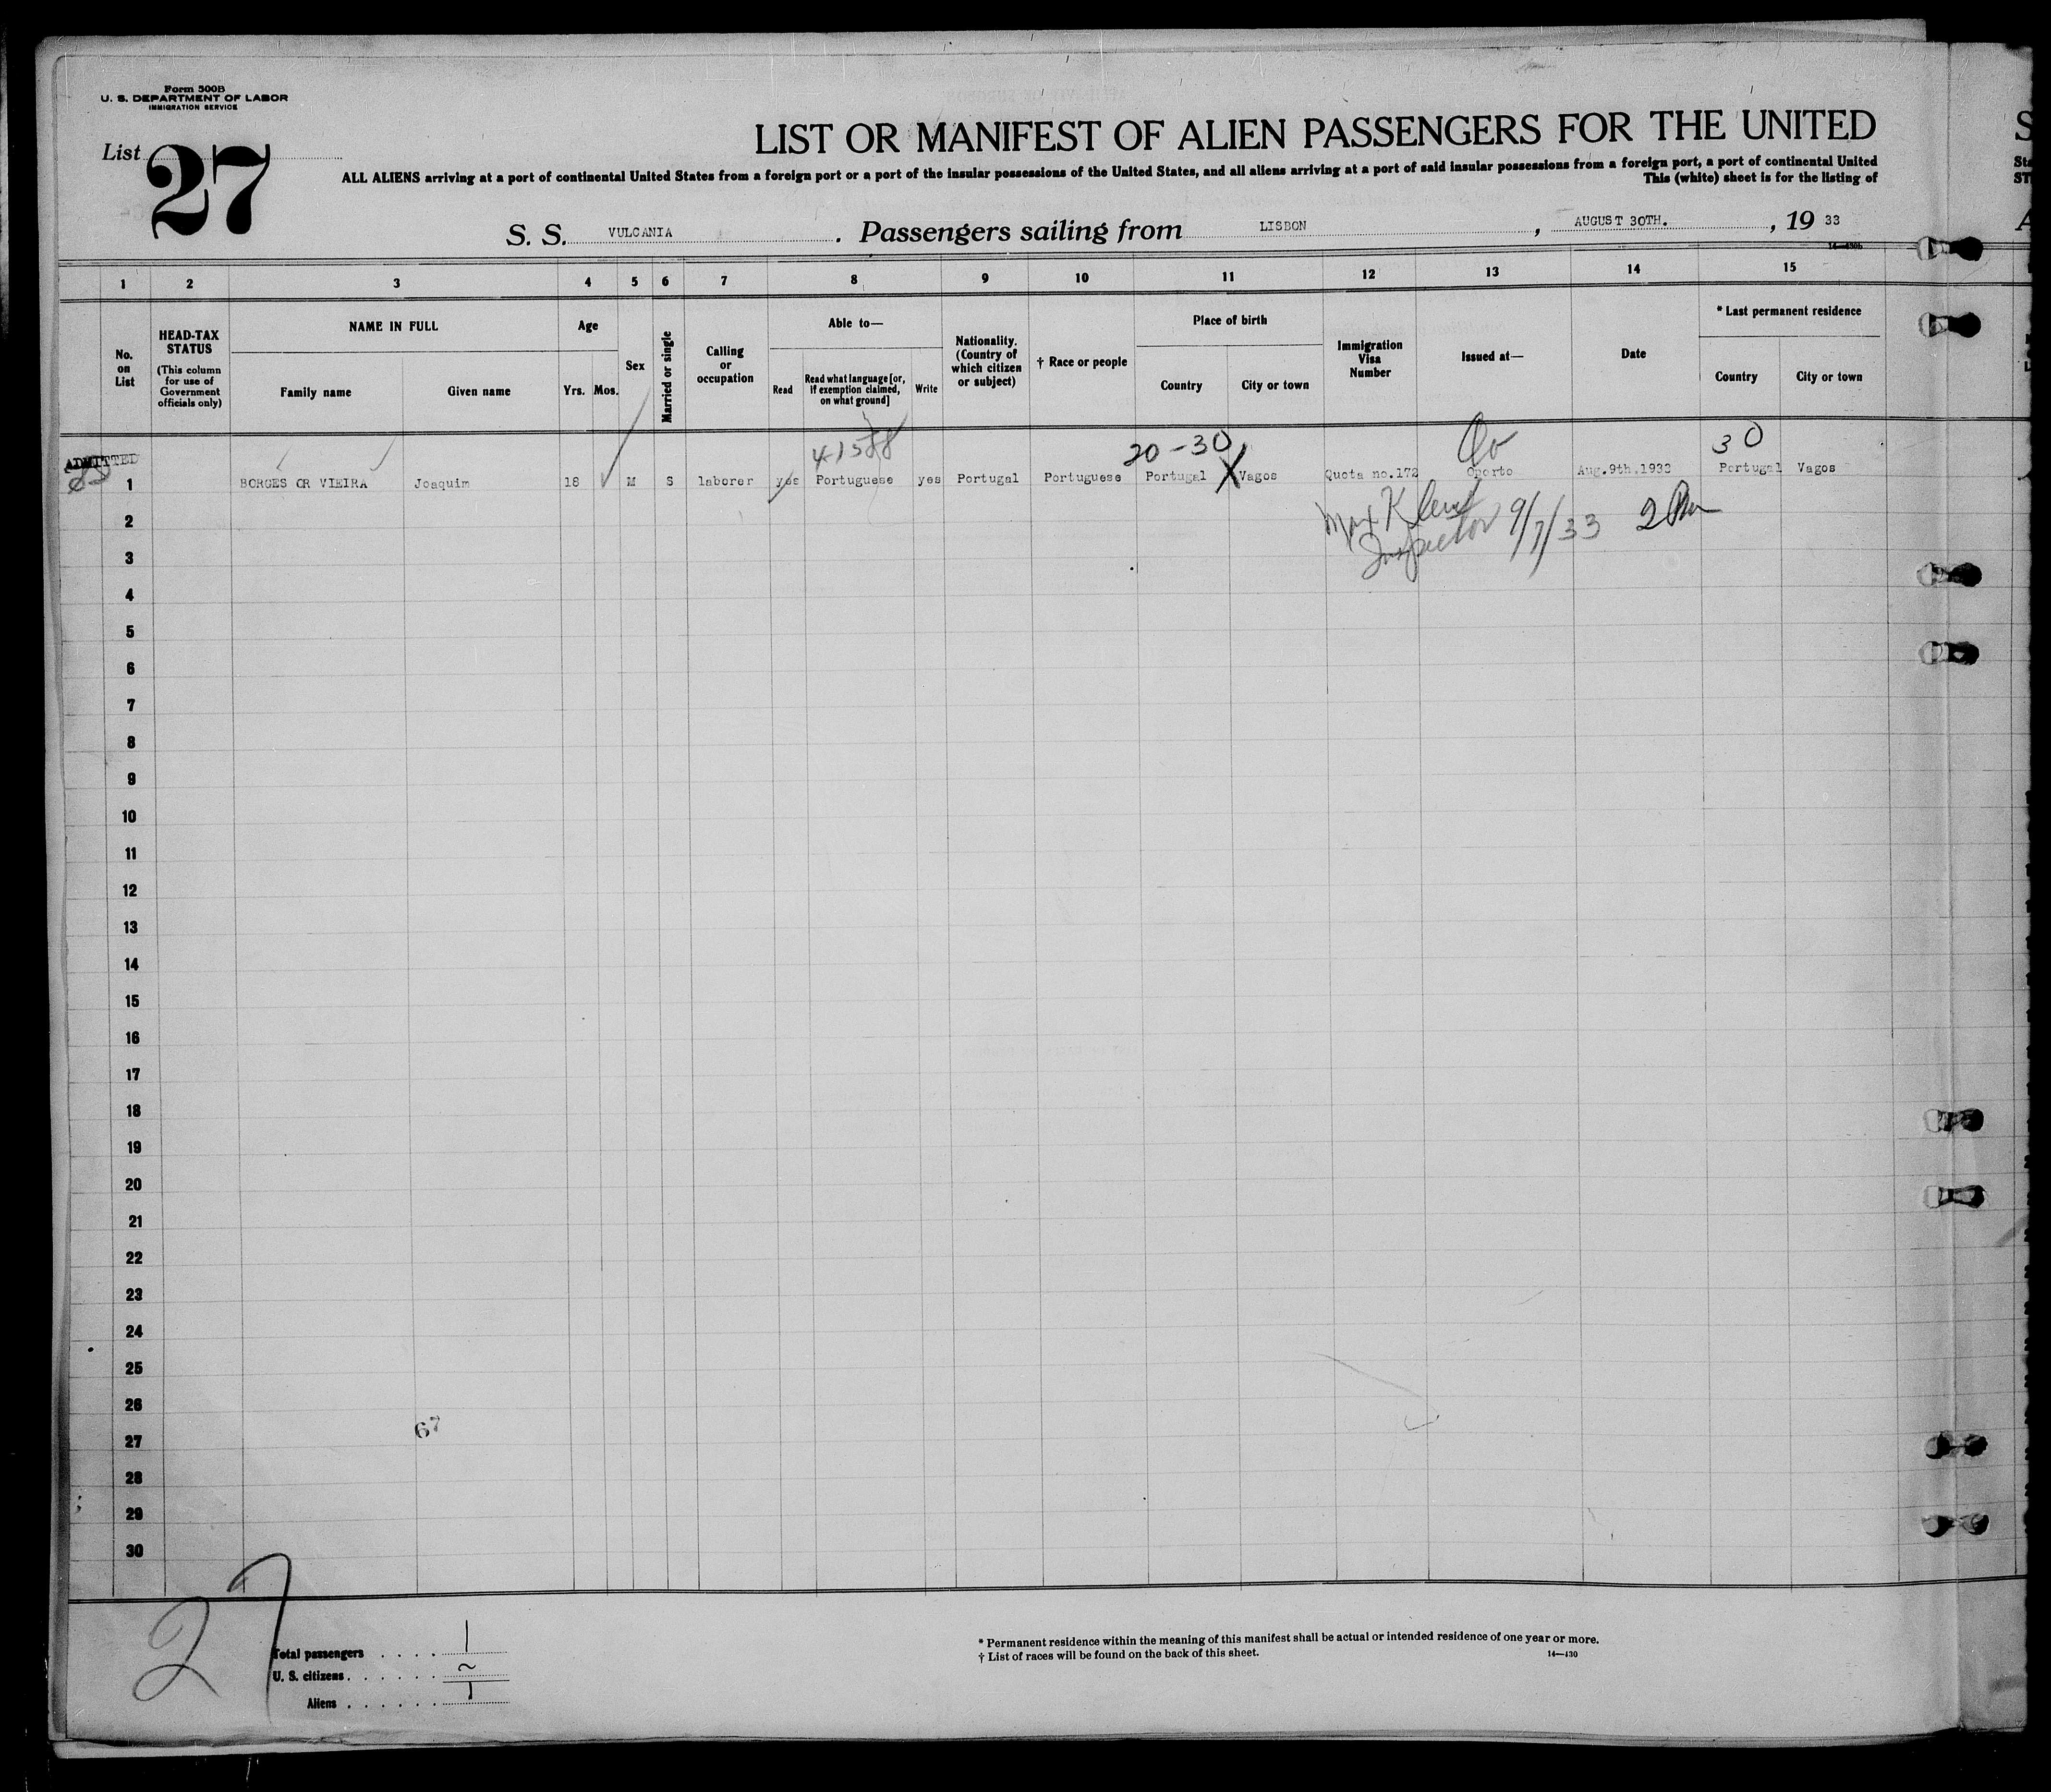 Form 500B
U. S. DEPARTMENT OF LABOR
IMMIGRATION SERVICE
List 27
LIST OR MANIFEST OF ALIEN PASSENGERS FOR THE UNITED
ALL ALIENS arriving at a port of continental United States from a foreign port or a port of the insular possessions of the United States, and all aliens arriving at a port of said insular possessions from a foreign port, a port of continental United
This (white) sheet is for the listing of
S. S. VULCANIA . Passengers sailing from LISBON , AUGUST 30TH. , 19 33
1 2 3 4 5 6 7 8 9 10 11 12 13 14 15
No. on List
HEAD-TAX STATUS
(This column for use of Government officials only)
NAME IN FULL
Family name Given name
Age
Yrs. Mos.
Sex
Married or single
Calling or occupation
Able to—
Read
Read what language [or, if exemption claimed, on what ground]
Write
Nationality. (Country of which citizen or subject)
† Race or people
Place of birth
Country City or town
Immigration Visa Number
Issued at—
Date
* Last permanent residence
Country City or town
41588 20-30 30
ADMITTED
1 BORGES OR VIEIRA Joaquim 18 M S laborer yes Portuguese yes Portugal Portuguese Portugal X Vagos Quota no.172 Oporto Aug.9th.1933 Portugal Vagos
Inspector 9/7/33
2
3
4
5
6
7
8
9
10
11
12
13
14
15
16
17
18
19
20
21
22
23
24
25
26
67
27
28
29
30
27
Total passengers . . . . 1
U. S. citizens . . . . . . ~
Aliens . . . . . . 1
* Permanent residence within the meaning of this manifest shall be actual or intended residence of one year or more.
† List of races will be found on the back of this sheet.
14—430